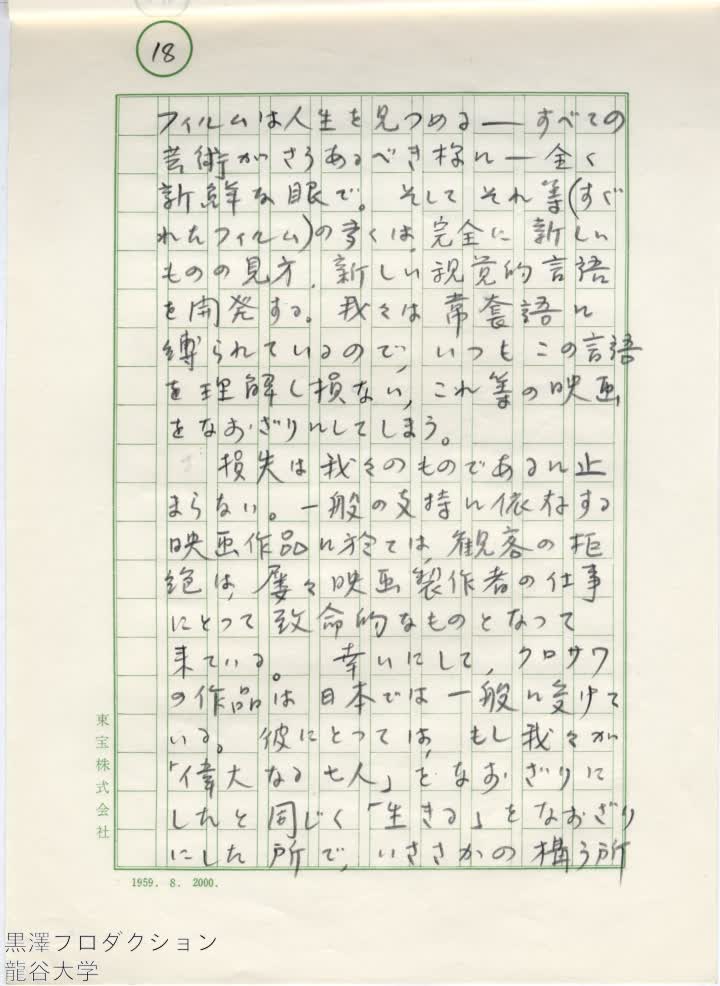 18
フィルムは人生を見つめる――すべての
芸術がさうあるべき様に―全く
新鮮な眼で。そしてそれ等(すぐ
れたフィルム)の多くは、完全に新しい
ものの見方、新しい視覚的言語
を開発する。我々は常套語に
縛られているので、いつもこの言語
を理解し損ない、これ等の映画
をなおざりにしてしまう。
損失は我々のものであるに止
まらない。一般の支持に依存する
映画作品に於ては、観客の拒
絶は、屡々映画製作者の仕事
にとって致命的なものとなって
来ている。幸いにして、クロサワ
の作品は日本では一般に受けて
いる。彼にとっては、もし我々が
「偉大なる七人」をなおざりに
したと同じく「生きる」をなおざり
にした所で、いささかの構う所
東宝株式会社
1959. 8. 2000.
黒澤プロダクション
龍谷大学